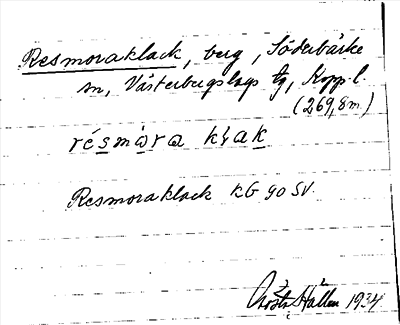 Resmoraklack, berg, Söderbärke
sn, Västerbergslags tg, Kopp.l.
(269,8 m.)
résmòra klak
Resmoraklack KG 90 SV.
Gösta Hallén 1934